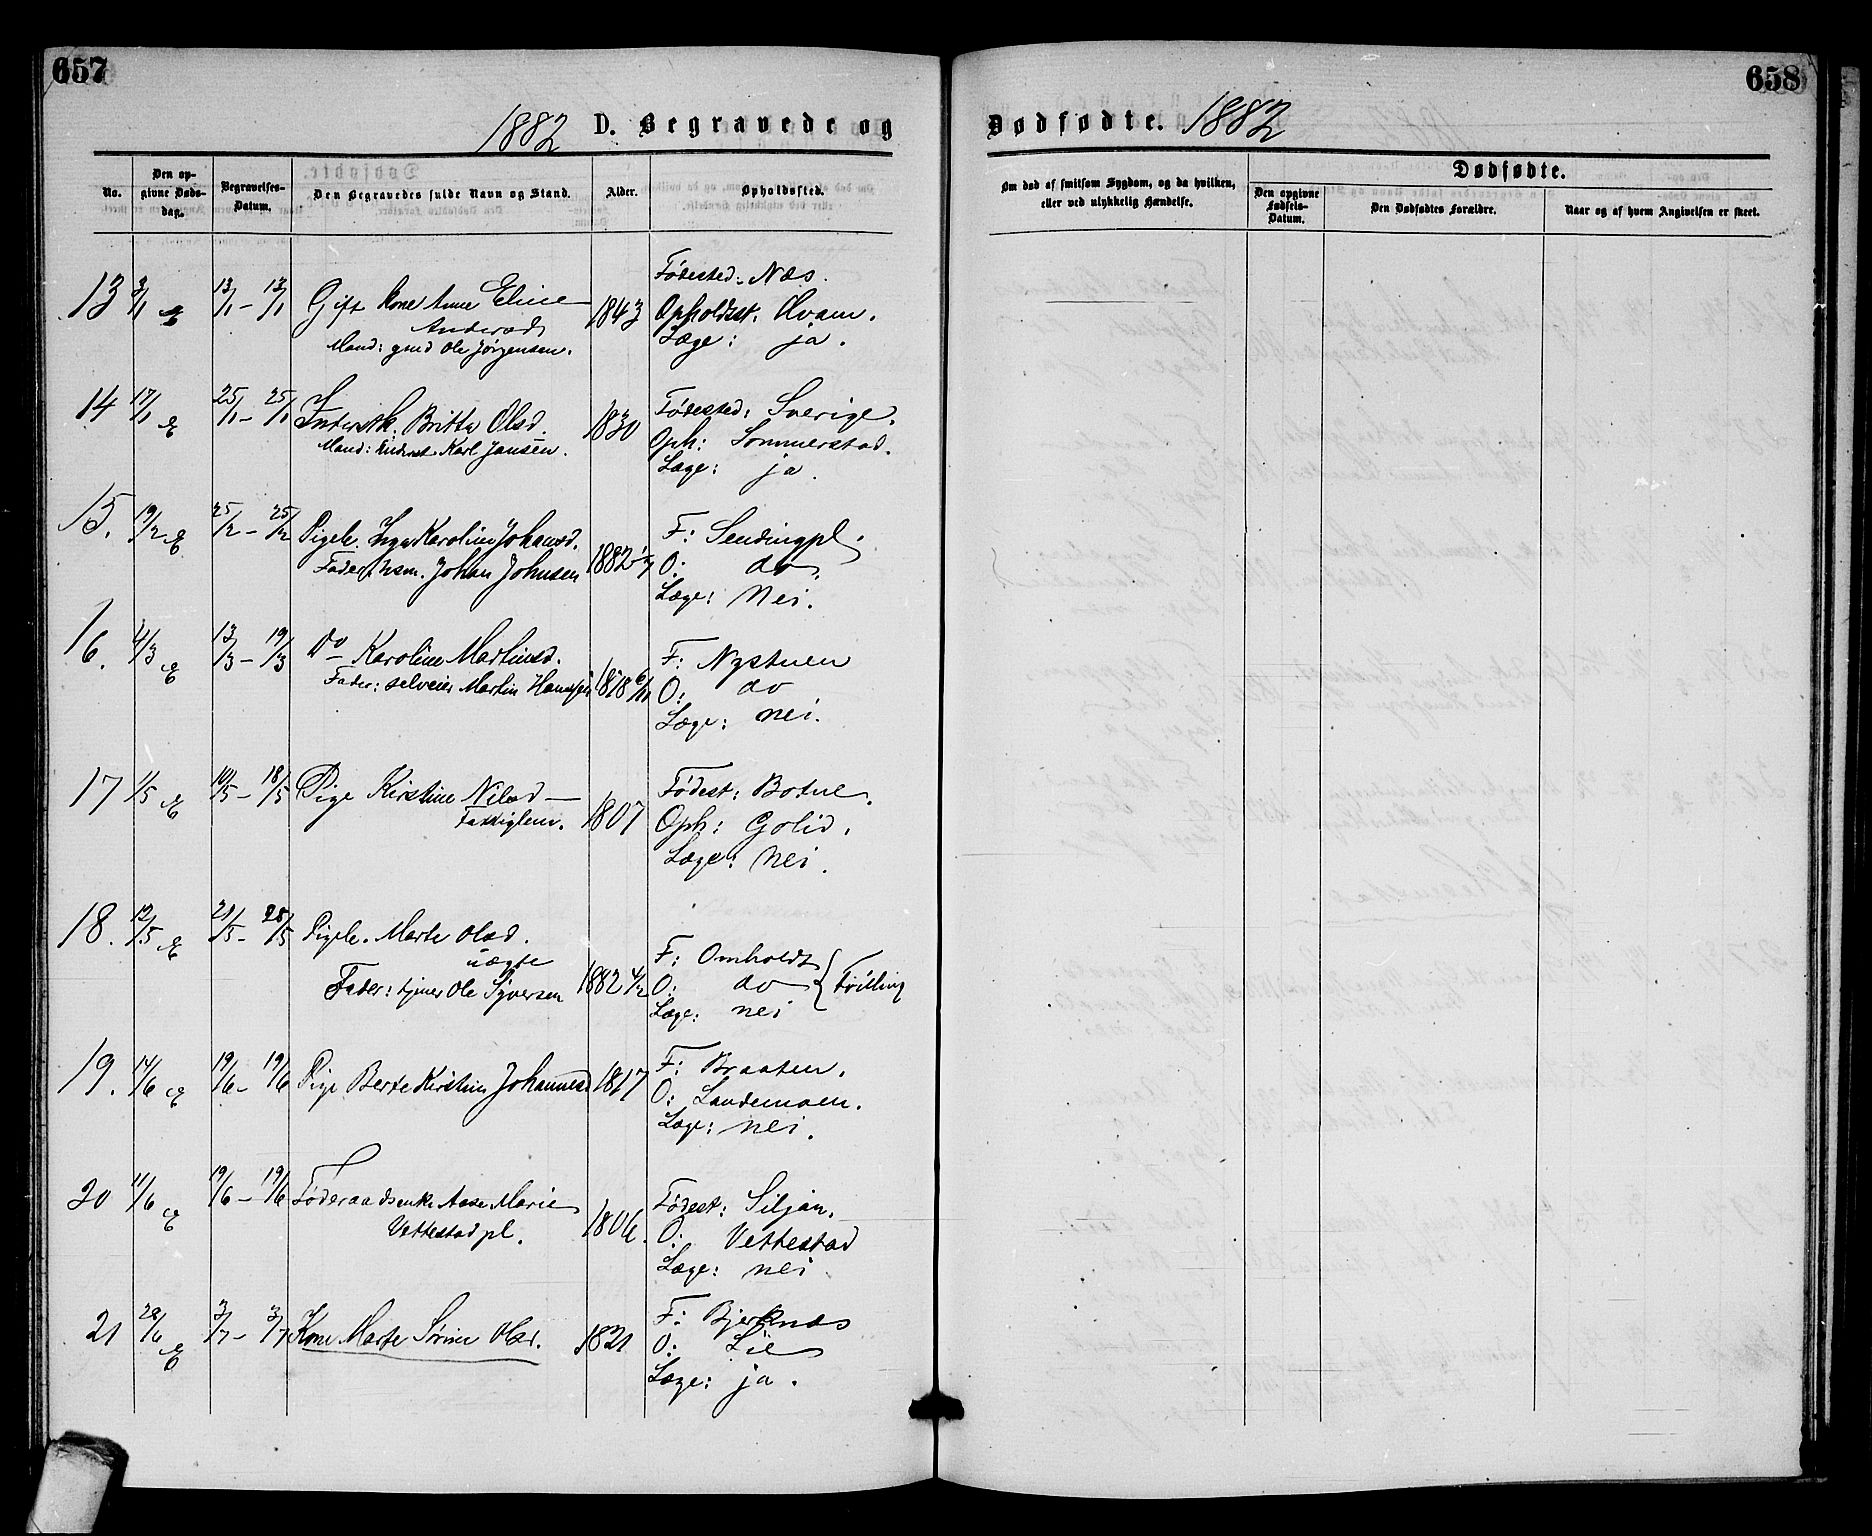 657
1882 D. Begravede og
No.
Den opgivne Dødsdag.
Begravelses-Datum.
Den Begravedes fulde Navn og Stand.
Alder.
Opholdssted.
13 3/1 13/1 - 13/1 Gift kone Anne Eline 1843 Fødested: Næs.
Andersd Opholdsst: Hvam.
Mand: gmd Ole Jørgensen. Læge: ja.
14 17/1 25/1 - 25/1 Inderstk. Britta Olsd. 1830 Fødested: Sverige.
Mand: Inderst Karl Jansen. Oph: Sommerstad.
Læge: ja.
15. 19/2 25/2 - 25/2 Pigeb. Inga Karoline Johansd. 1882 1/7 F: Sendingpl.
Fader: hsm. Johan Johnsen O: do.
Læge: Nei.
16. 4/3 13/3 - 19/3 Do Karoline Martinsd. 1878 6/11 F: Nystuen
Fader: selveier Martin Hansen O: do
Læge: nei.
17 1/5 10/5 - 18/5 Pige Kirstine Nilsd — 1807 Fødest: Botne.
Fattiglem. Oph: Golid.
Læge: Nei.
18. 12/5 21/5 - 28/5 Pigeb. Marte Olsd. 1882 4/2 F: Omholdt
uægte O: do } Tvilling
Fader: tjener Ole Syversen Læge: nei
19. 14/6 19/6 - 19/6 Pige Berte Kirstine Johannesd 1817 F: Braaten.
O: Landemoen.
Læge: nei.
20 11/6 19/6 - 19/6 Føderaadsenke Aase Marie 1806. Fødest: Siljan.
Vettestad pl. O: Vettestad
Læge: nei
21 28/6 3/7 - 3/7 Kone Marte Sørine Olsd. 1821 F: Bjerknæs
O: Lie
Læge: ja.
658
Dødfødte. 1882
Om død af smitsom Sygdom, og da hvilken, eller ved ulykkelig Hændelse.
Dødfødte.
Den opgivne Fødsels-Datum.
Den Dødfødtes Forældre.
Naar og af hvem Angivelsen er skeet.